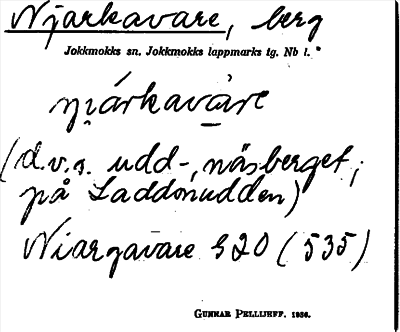 Njarkavare, berg
Jokkmokks sn. Jokkmokks lappmarks tg. Nb l.
njárkavàre
(d.v.s. udd-, näsberget;
på Laddonudden)
Niargavare S20 (535)
GUNNAR PELLIJEFF. 1936.